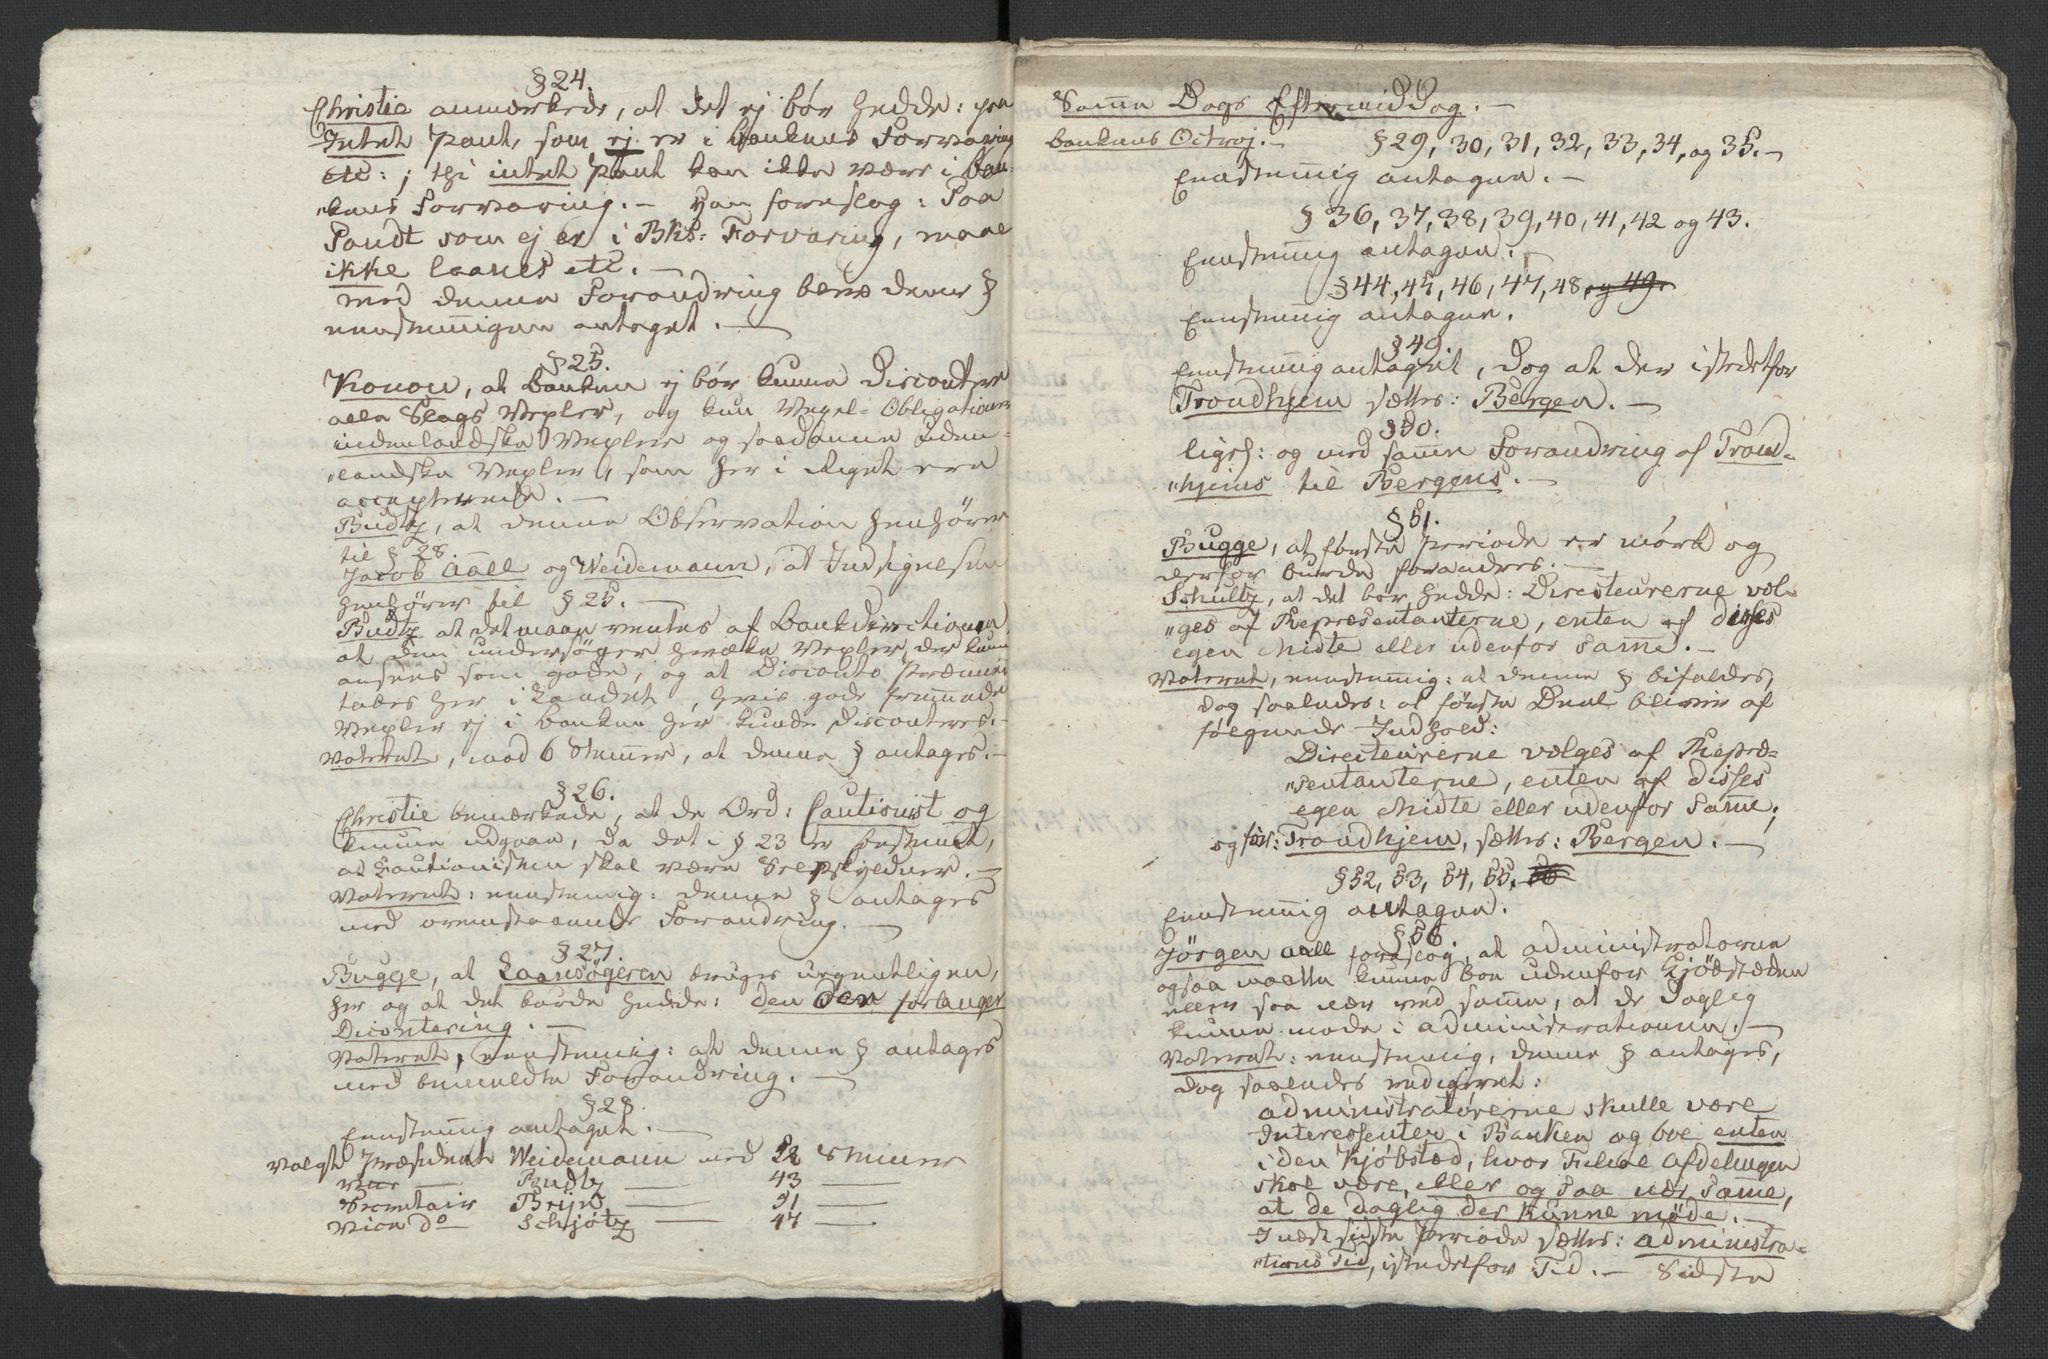 § 24.
Christie anmærkede, at det ej bør hedde: paa
Intet Pant, som ej er i Bankens Forvaring
etc: ; thi intet Pant kan ikke være i Ban-
"kens Forvaring. - Han foreslog: Paa
Pandt som ej er i Bks: Forvaring, maae
ikke laanes etc. -
Med denne Forandring blev denne §
eenstemigen antaget. -
§ 25.
Konow, at Banken ej bør kunne Discontere
alle Slags Vexler, og kun Vexel-Obligationer
indenlandske Vexler og saadanne uden-
"landske Vexler, som her i Riget ere
accepterede. -
Budtz, at denne Observation henhører
til § 28.
Jacob Aall og Weidemann, at Indsigelsen
henhører til § 25. -
Budtz at det maae ventes af Bankdirectionen
at den undersøger hvilke Vexler der kunne
ansees som gode, og at Disconto Præmien
tabes her i Landet, hvis gode fremmede
Vexler ej i Banken her kunde Disconteres. -
Voteret, mod 6 Stemmer, at denne § antages. -
§ 26.
Christie bemærkede, at de Ord: Cautionist og
kunne udgaae, da det i § 23 er bestemt,
at Cautionisten skal være Selvskyldner. -
Voteret: eenstemig: denne § antages
med ovenstaaende Forandring. -
§ 27.
Bugge, at Laansøgeren bruges uegentligen,
her og at det burde hedde: den der forlanger
Discontering. -
Voteret, eenstemig: at denne § antages
med bemeldte Forandring. -
§ 28.
Eenstemig antaget. -
Valgt Præsident Weidemann med 52 Stemmer
Vice — Budtz — 43 —
Secretair Brijn — 51 —
Vice do Schjøtz — 47 —
Samme Dags Eftermiddag. -
Bankens Octroj. - § 29, 30, 31, 32, 33, 34, og 35. -
Eenstemig antagen. -
§ 36, 37, 38, 39, 40, 41, 42 og 43.
Eenstemig antagen.
§ 44, 45, 46, 47, 48, og 49.
Eenstemig antagen.
§ 49
Eenstemig antaget, dog at der istedetfor
Trondhjem sættes: Bergen. -
§ 50.
ligesh: og med samme Forandring af Trond-
"hjems til Bergens. -
§ 51.
Bugge, at første Periode er mørk og
derfor burde forandres. -
Schultz, at det bør hedde: Directeurerne væl-
"ges af Repræsentanterne, enten af disses
egen Midte eller udenfor samme. -
Voteret, eenstemig: at denne § bifaldes,
dog saaledes: at første Deel bliver af
følgende Indhold:
Directeurerne vælges af Repræ-
"sentanterne, enten af disses
egen Midte eller udenfor samme;
og for: Trondhjem, sættes: Bergen. -
§ 52, 53, 54, 55, 56
Eenstemig antagen.
§ 56
Jørgen Aall foreslog, at Administratorerne
ogsaa maatte kunne boe udenfor Kjøbstæden
eller saa nær ved samme, at de daglig
kunne møde i Administrationen. -
Voteret: eenstemig, denne § antages,
dog saaledes redigeret:
Administratorerne skulle være
Interessenter i Banken og boe enten
i den Kjøbstæd, hvor Filial Afdelingen
skal være, eller og saa nær samme,
at de daglig der kunne møde. -
I næst sidste Periode sættes: Administra-
"tions Tid, istedetfor Tid. - Sidste